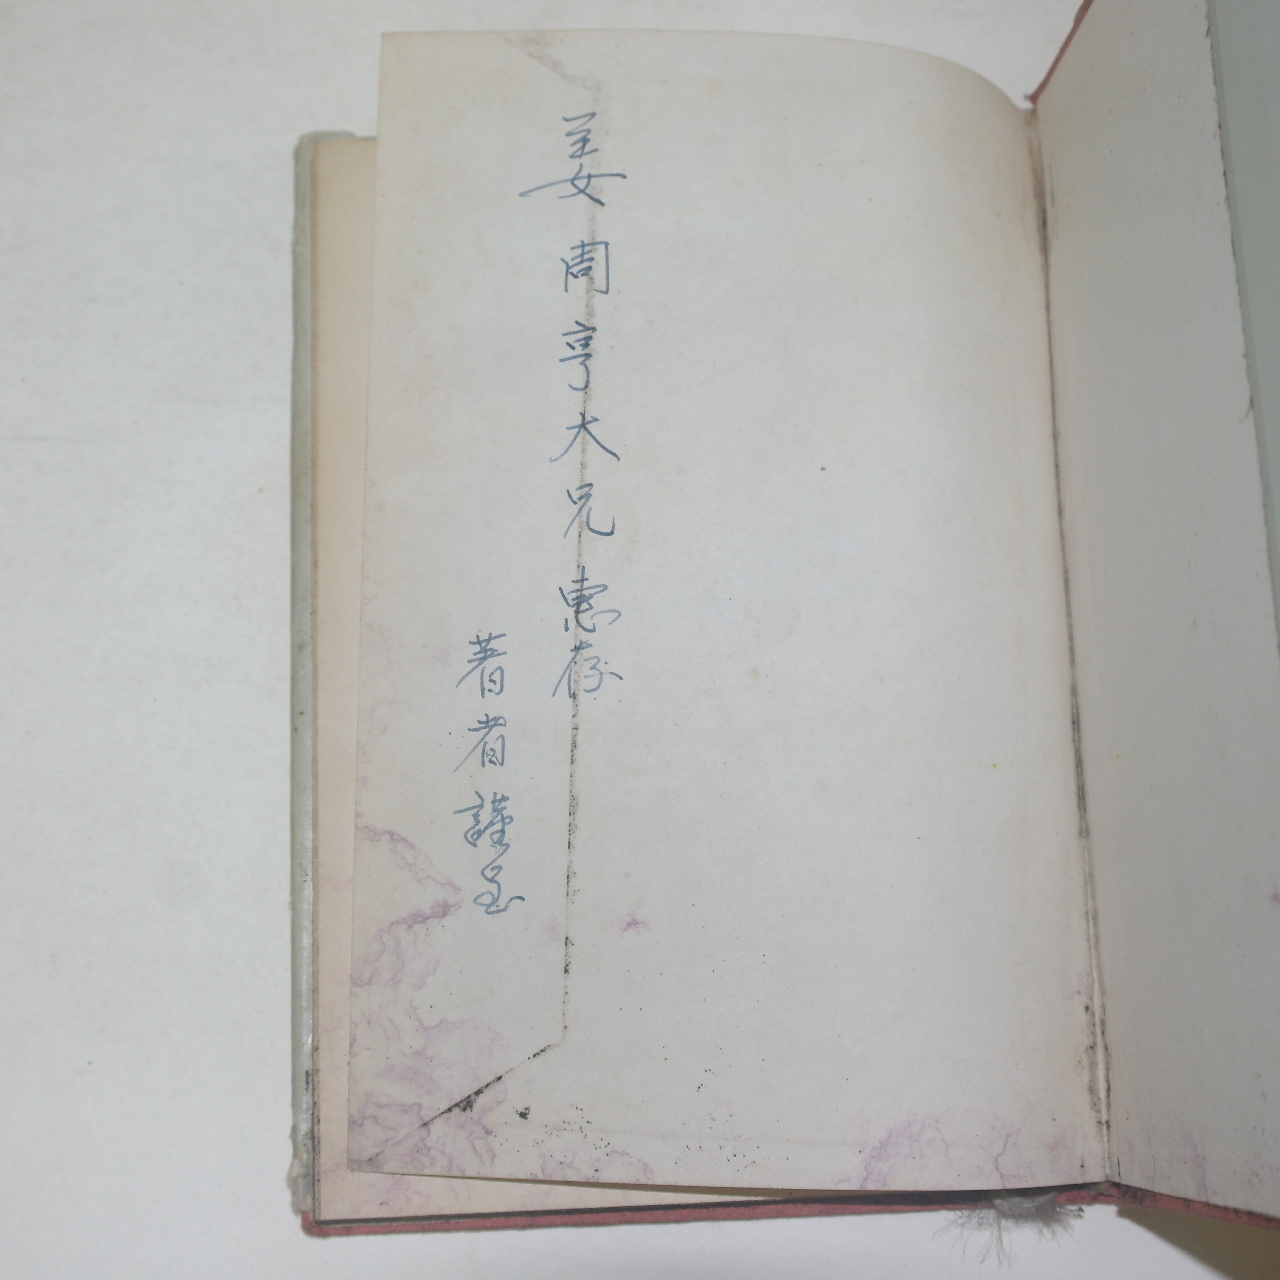 姜周亨大兄惠存
著者謹呈